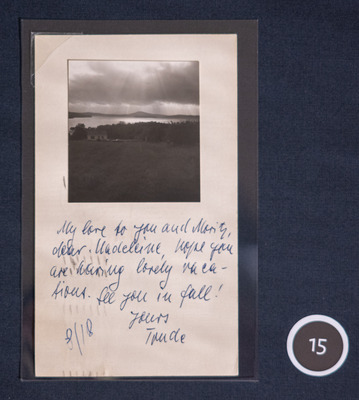 My love to you and Moritz,
dear Madeleine, hope you
are having lovely vaca-
tions. See you in fall!
Yours
Trude
8/18
15